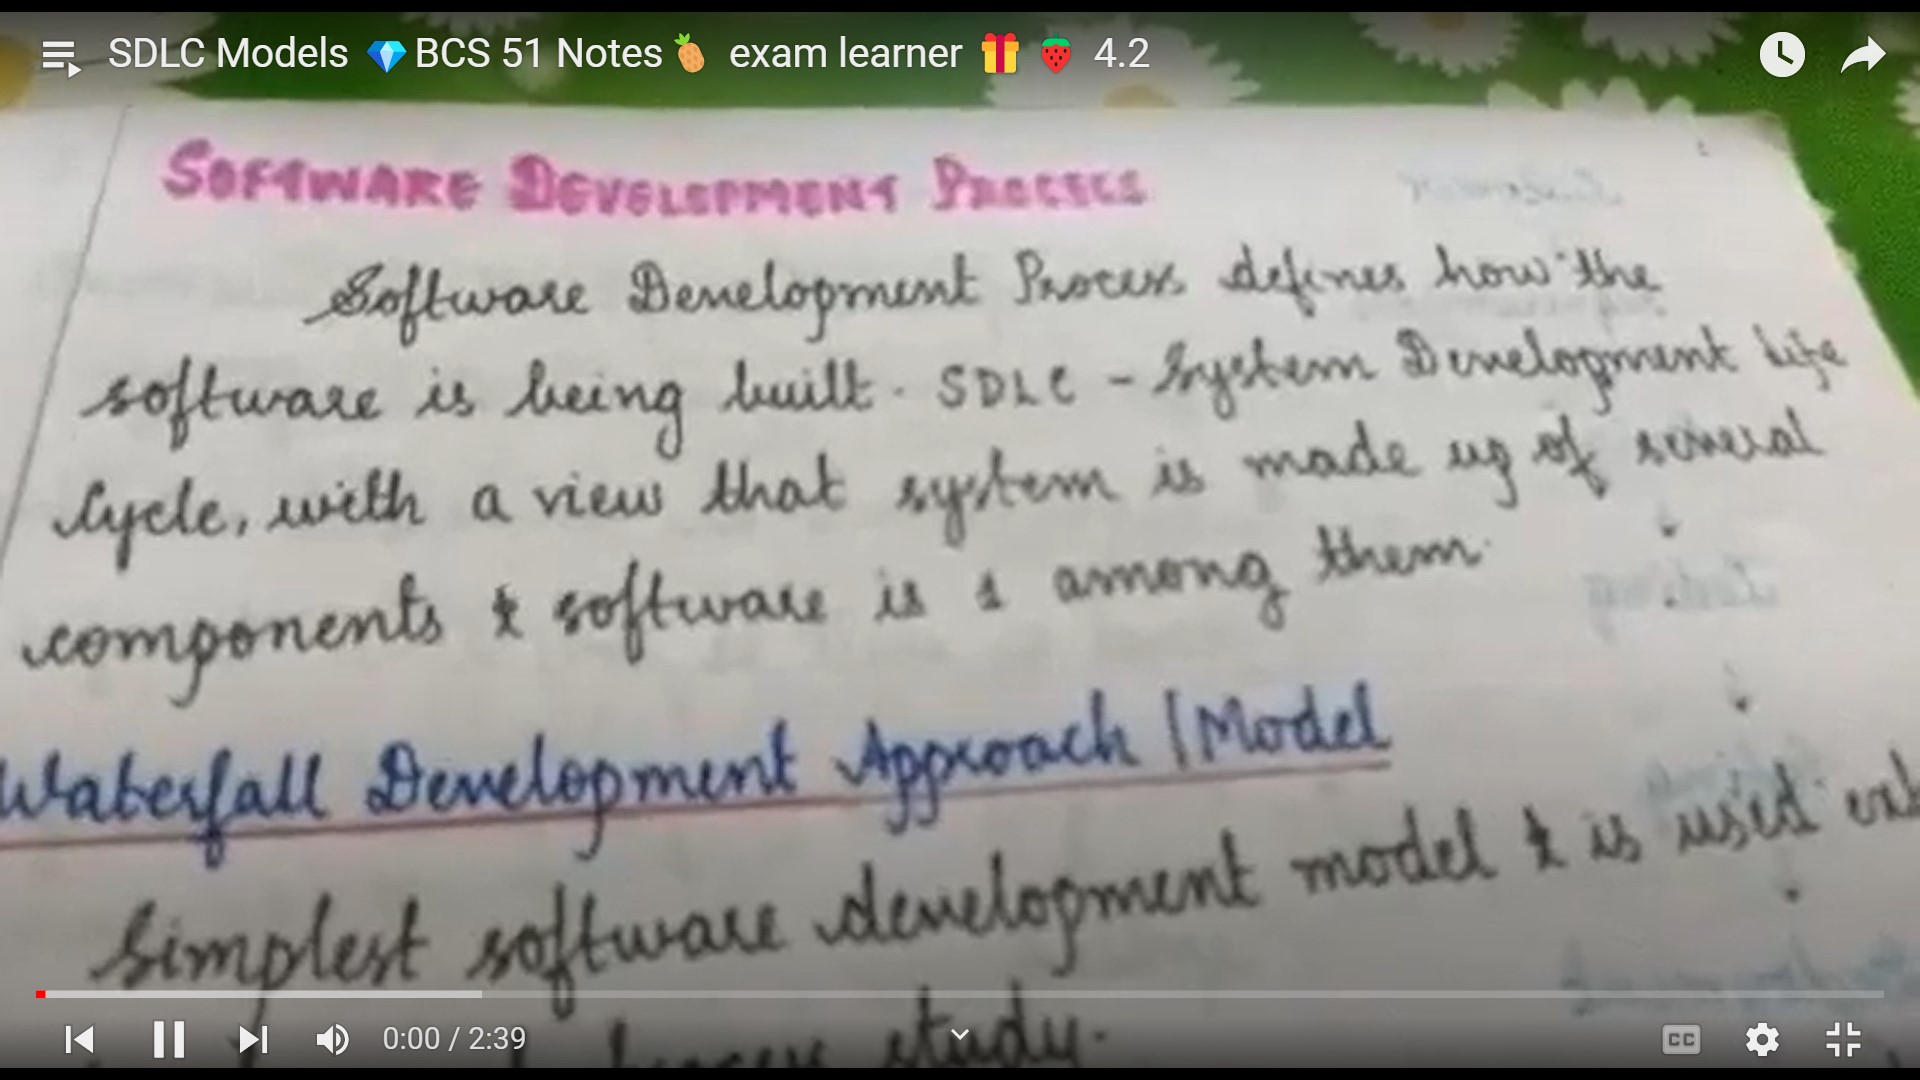 SDLC Models 💎BCS 51 Notes🍍 exam learner 🎁 🍓 4.2
SOFTWARE DEVELOPMENT PROCESS
Software Development Process defines how the
software is being built. SDLC - System Development Life
Cycle, with a view that system is made up of several
components & software is 1 among them.
Waterfall Development Approach | Model
Simplest software development model & is used
study.
0:00 / 2:39
CC